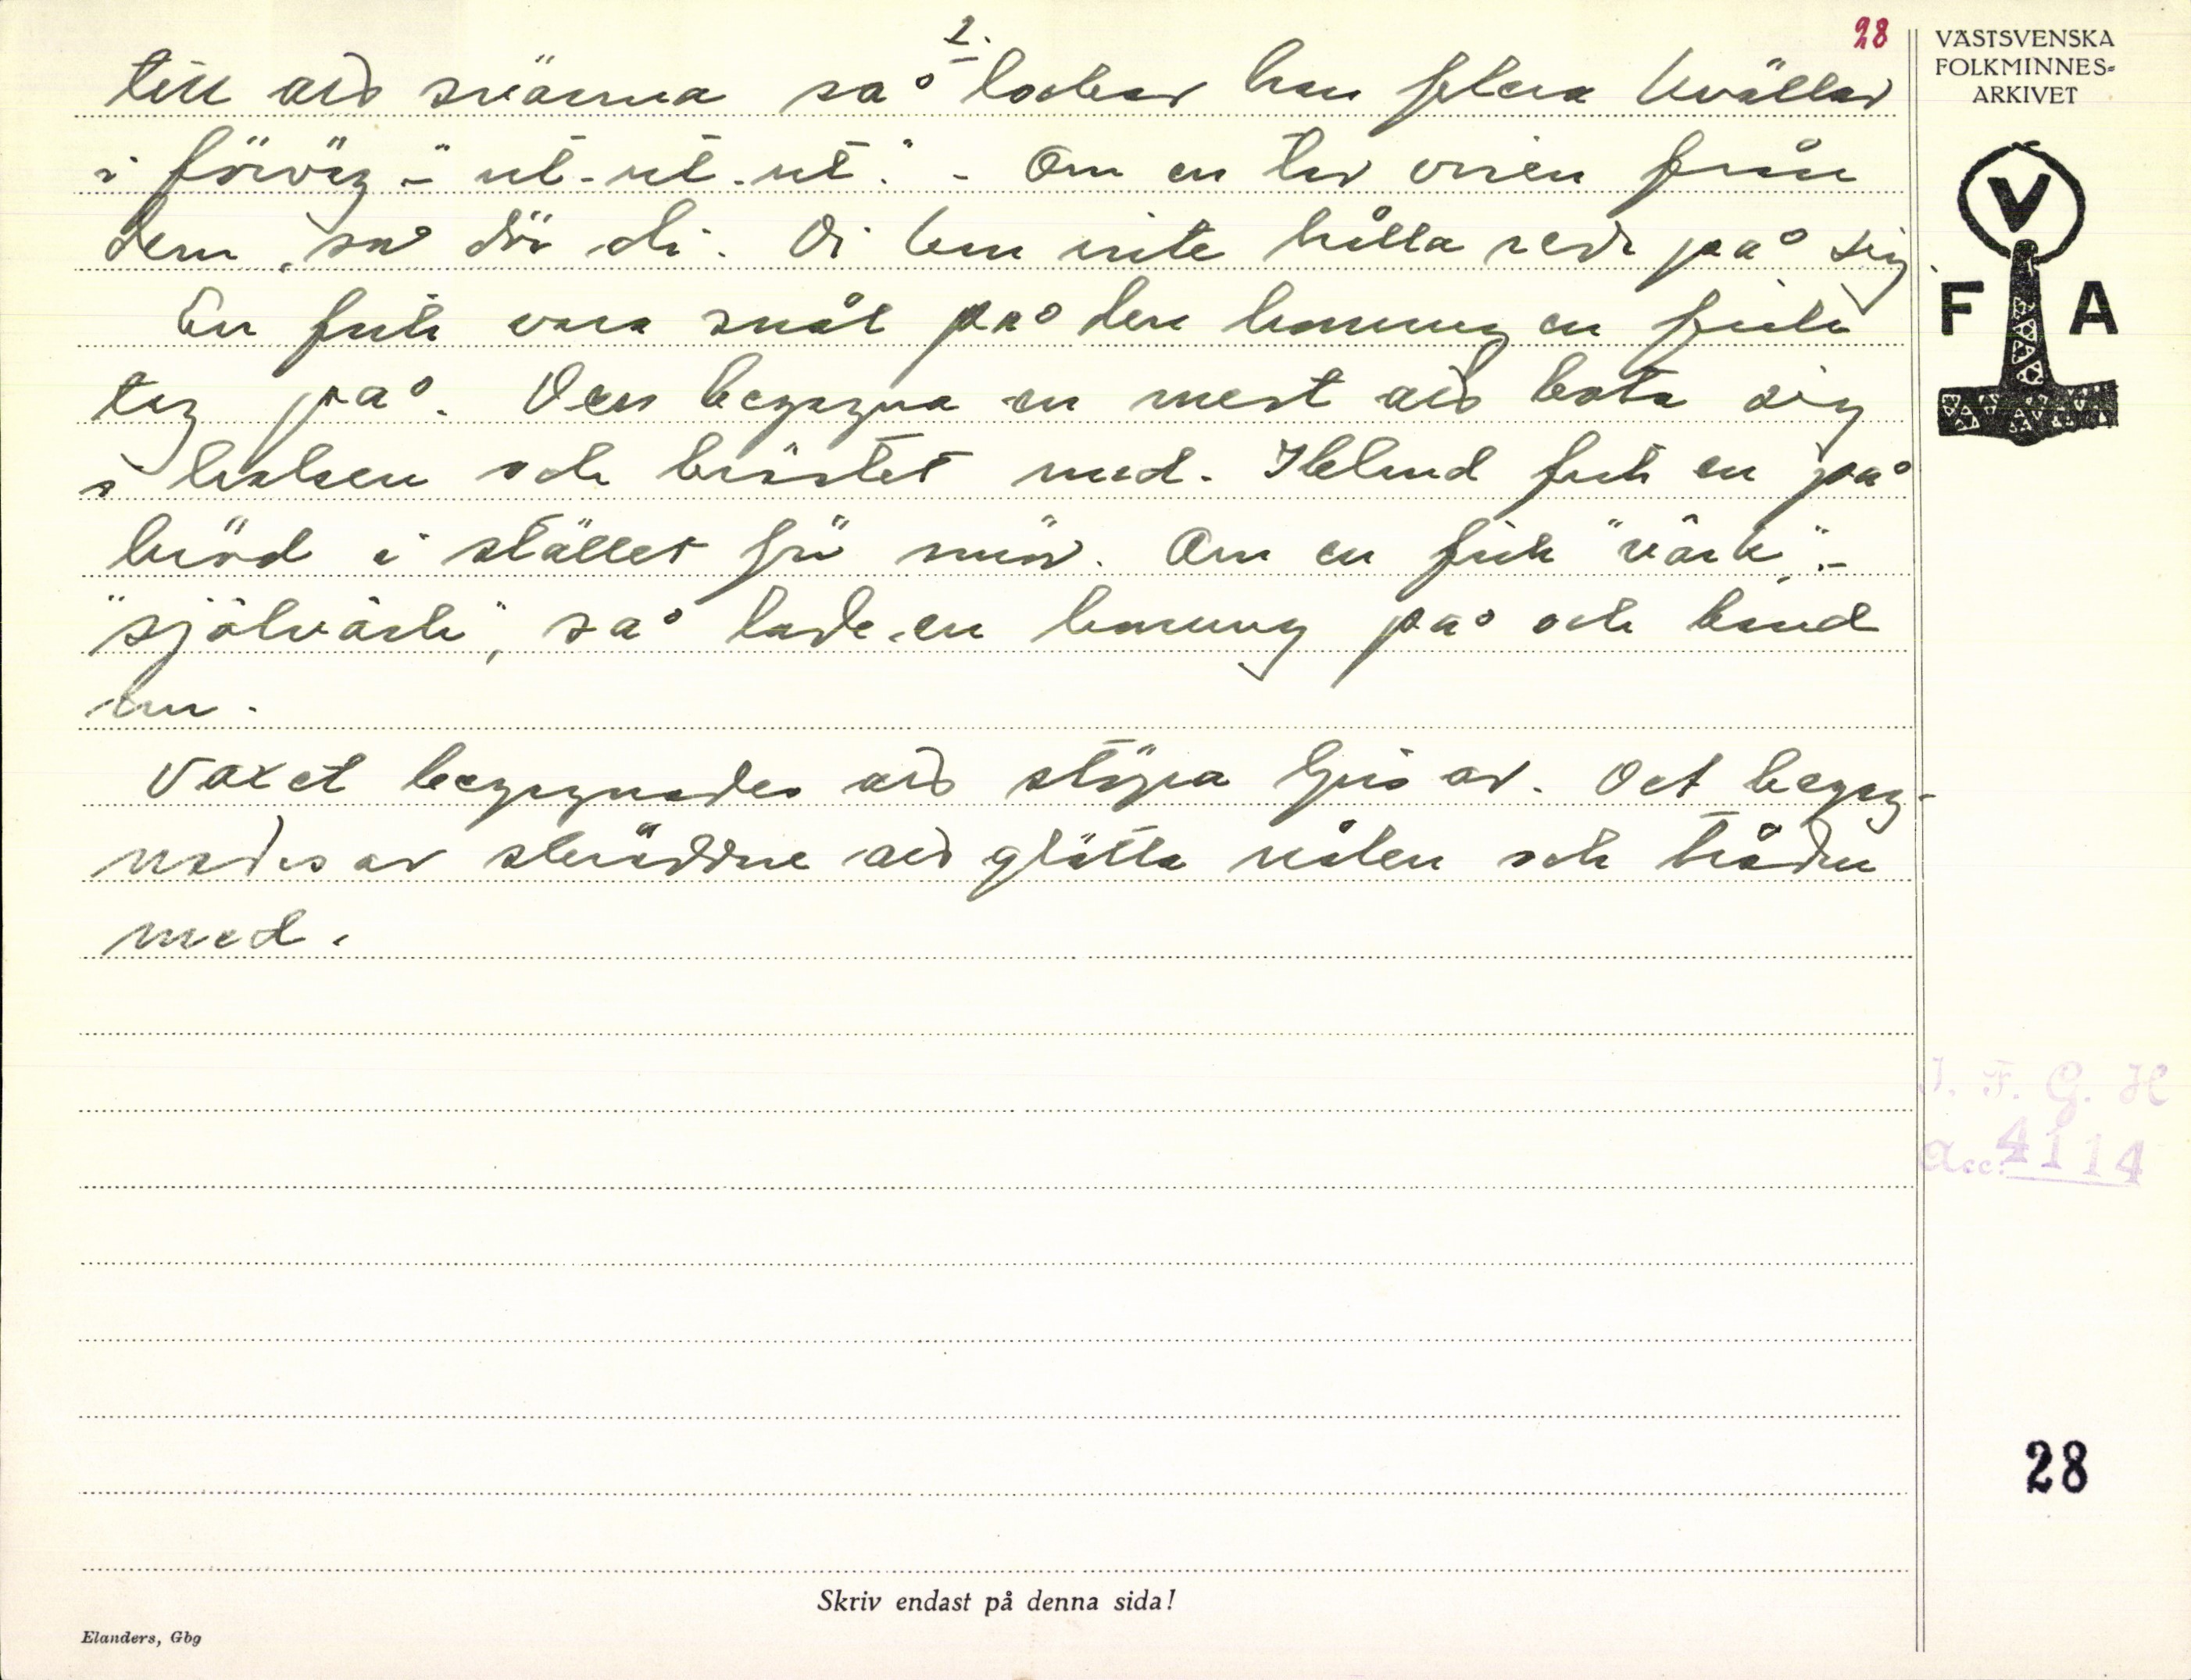 2.
28
VÄSTSVENSKA
FOLKMINNES-
ARKIVET
till att svärma så lockar hon flera kvällar
i förväg - "ut-ut-ut". - Om en tar visen från
dem, så dör di. Di kan inte hålla reda på sig
En fick vara snål på den honung en fick
tag på. Den begagna en mest att bota sig
i halsen och bröstet med. Ibland fick en på
bröd i stället för smör. Om en fick "värk" -
"självärk", så lade en honung på och band
om.
Vaxet begagnades att stöpa ljus av. Det begag-
nades av skräddare att glätta nålen och tråden
med.
V
F A
I. F. G. H
acc. 4114
28
Skriv endast på denna sida!
Elanders, Gbg